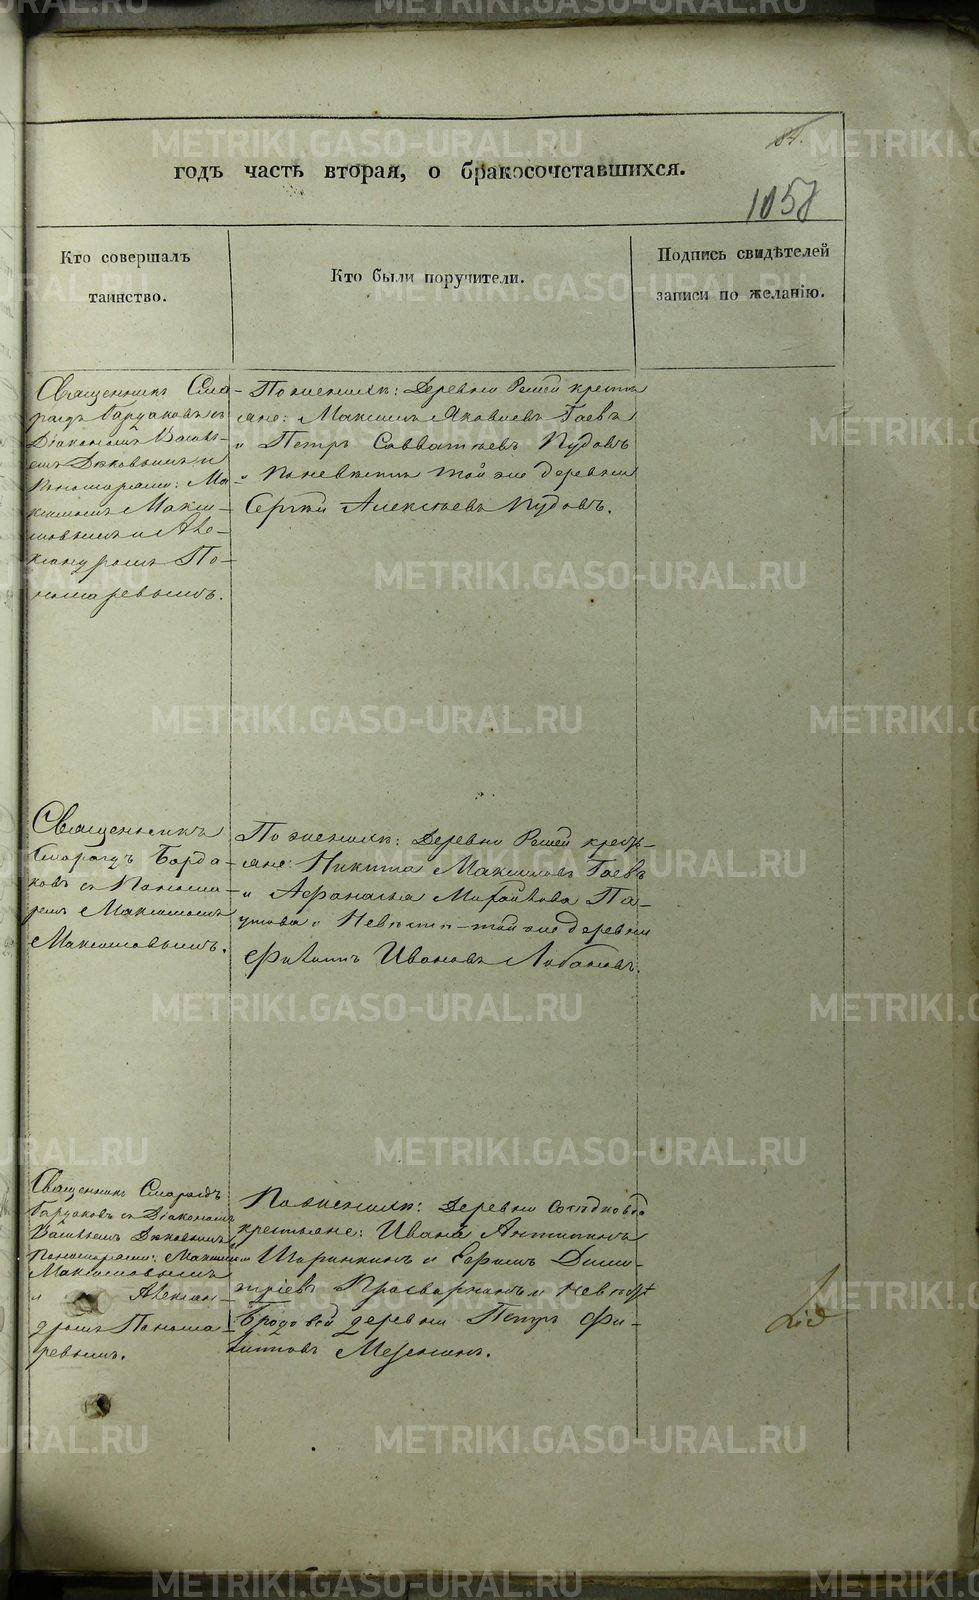 84.
годъ часть вторая, о бракосочетавшихся.
1058
Кто совершалъ
таинство.
Кто были поручители.
Подпись свидѣтелей
записи по желанію.
Священникъ Сма-
рагдъ Бардаковъ съ
Діакономъ Василь-
емъ Дюковымъ и
Пономарями: Ма-
ксимомъ Макси-
мовымъ и Але-
ксандромъ По-
номаревымъ.
По женихѣ: Деревни Решей кресть
яне: Максимъ Яковлевъ Гаевъ
и Петръ Савватѣевъ Пудовъ
По невѣстѣ той же деревни
Сергѣй Алексѣевъ Пудовъ.
Священникъ
Смарагдъ Барда-
ковъ съ Понома-
ремъ Максимомъ
Максимовымъ.
По женихѣ: Деревни Решей кресть-
яне: Никита Максимовъ Гаевъ
и Афанасья
Невѣстѣ той же деревни
Филипъ Ивановъ Лобановъ.
Священникъ Смарагдъ
Бардаковъ съ Діакономъ
Васильемъ Дюковымъ и
Пономарями: Максимомъ
Максимовымъ
и Алексан-
дромъ Понома
ревымъ.
По женихѣ: Деревни
крестьяне: Иванъ Антипинъ
Ширинкинъ и Ефимъ Дими-
тріевъ и невѣстѣ
Бродовой деревни Петръ Фи-
липповъ Мезенинъ.
METRIKI.GASO-URAL.RU